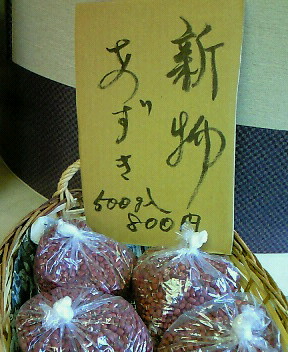 新物
あずき
500g入
800円